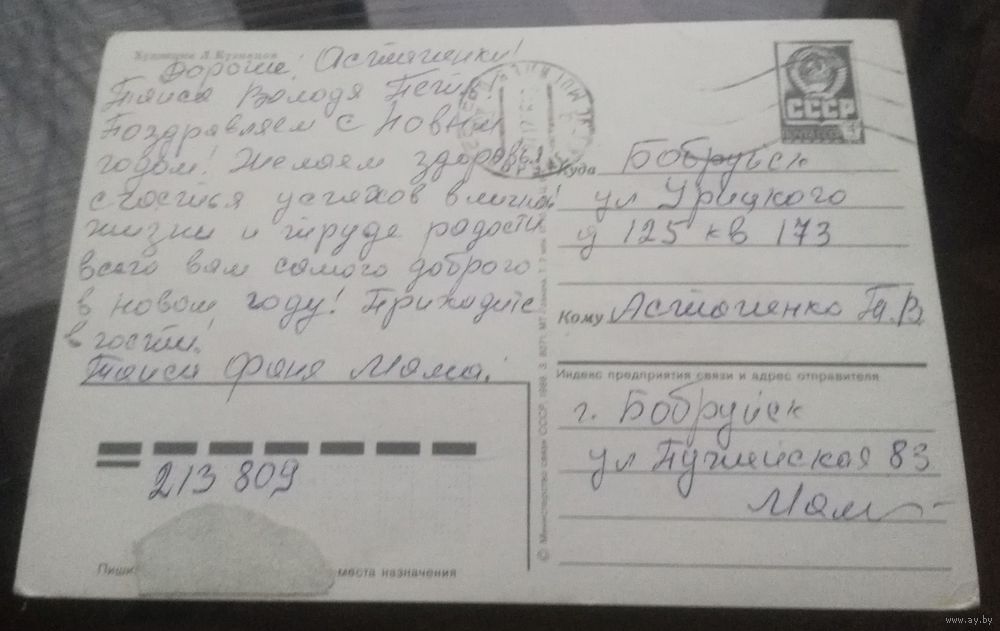 Художник Л. Кузнецов
Дорогие! Астапенки!
Таися Володя Петя!
Поздравляем с Новым
годом! Желаем здоровья
счастья успехов в личной
жизни и труде радости
всего вам самого доброго
в новом году! Приходите
в гости!
Таиси Фаня Мама.
СССР
Куда Бобруйск
ул Урицкого
д 125 кв 173
Кому Астапенко Т.В.
Индекс предприятия связи и адрес отправителя
г. Бобруйск
ул 83
Мам
213 809
Пиши места назначения
© Министерство связи СССР. 1989.
www.ay.by